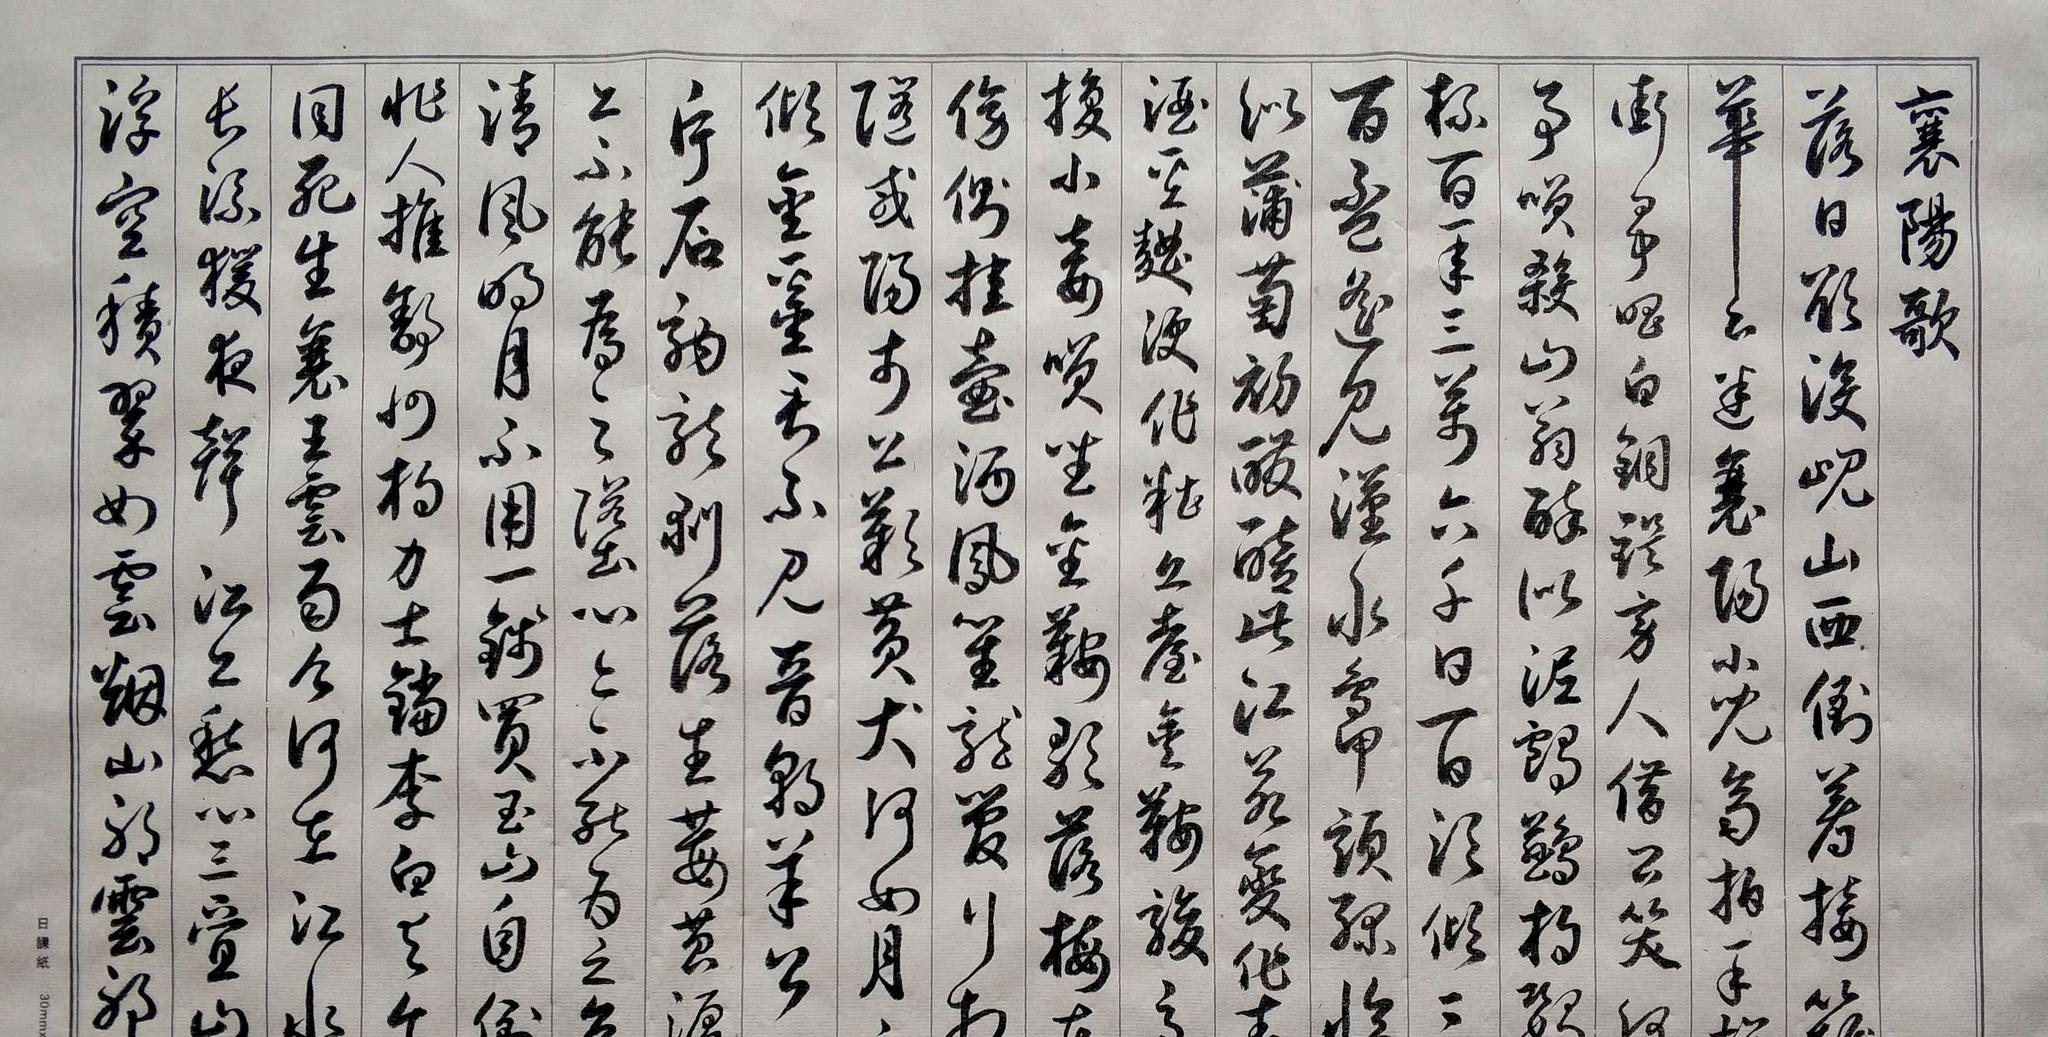 襄陽歌
落日欲沒峴山西倒著接䍦
華下迷襄陽小兒齊拍手攔
街爭唱白銅鞮旁人借公笑何
事笑殺山翁醉似泥鸕鷀杓鸚
杯百年三萬六千日一日須傾三
百盃遙見漢水鴨頭綠恰
似蒲萄初醱醅此江若變作春
酒壘麴便作糟丘臺金鞍駿馬
換小妾笑坐金鞍歌落梅車
傍側挂一壺酒鳳笙龍管行相
隨咸陽市上歎黃犬何如月下
傾金罍君不見晉朝羊公
片石龜龍剝落生莓苔淚
上不能為之墮心上不能為之哀
清風明月不用一錢買玉山自倒
非人推舒州杓力士鐺李白與爾
同死生襄王雲雨今何在江水
長流猿夜聲 江上愁心三疊山
浮空積翠如雲煙山耶雲耶
日課紙 30mm×